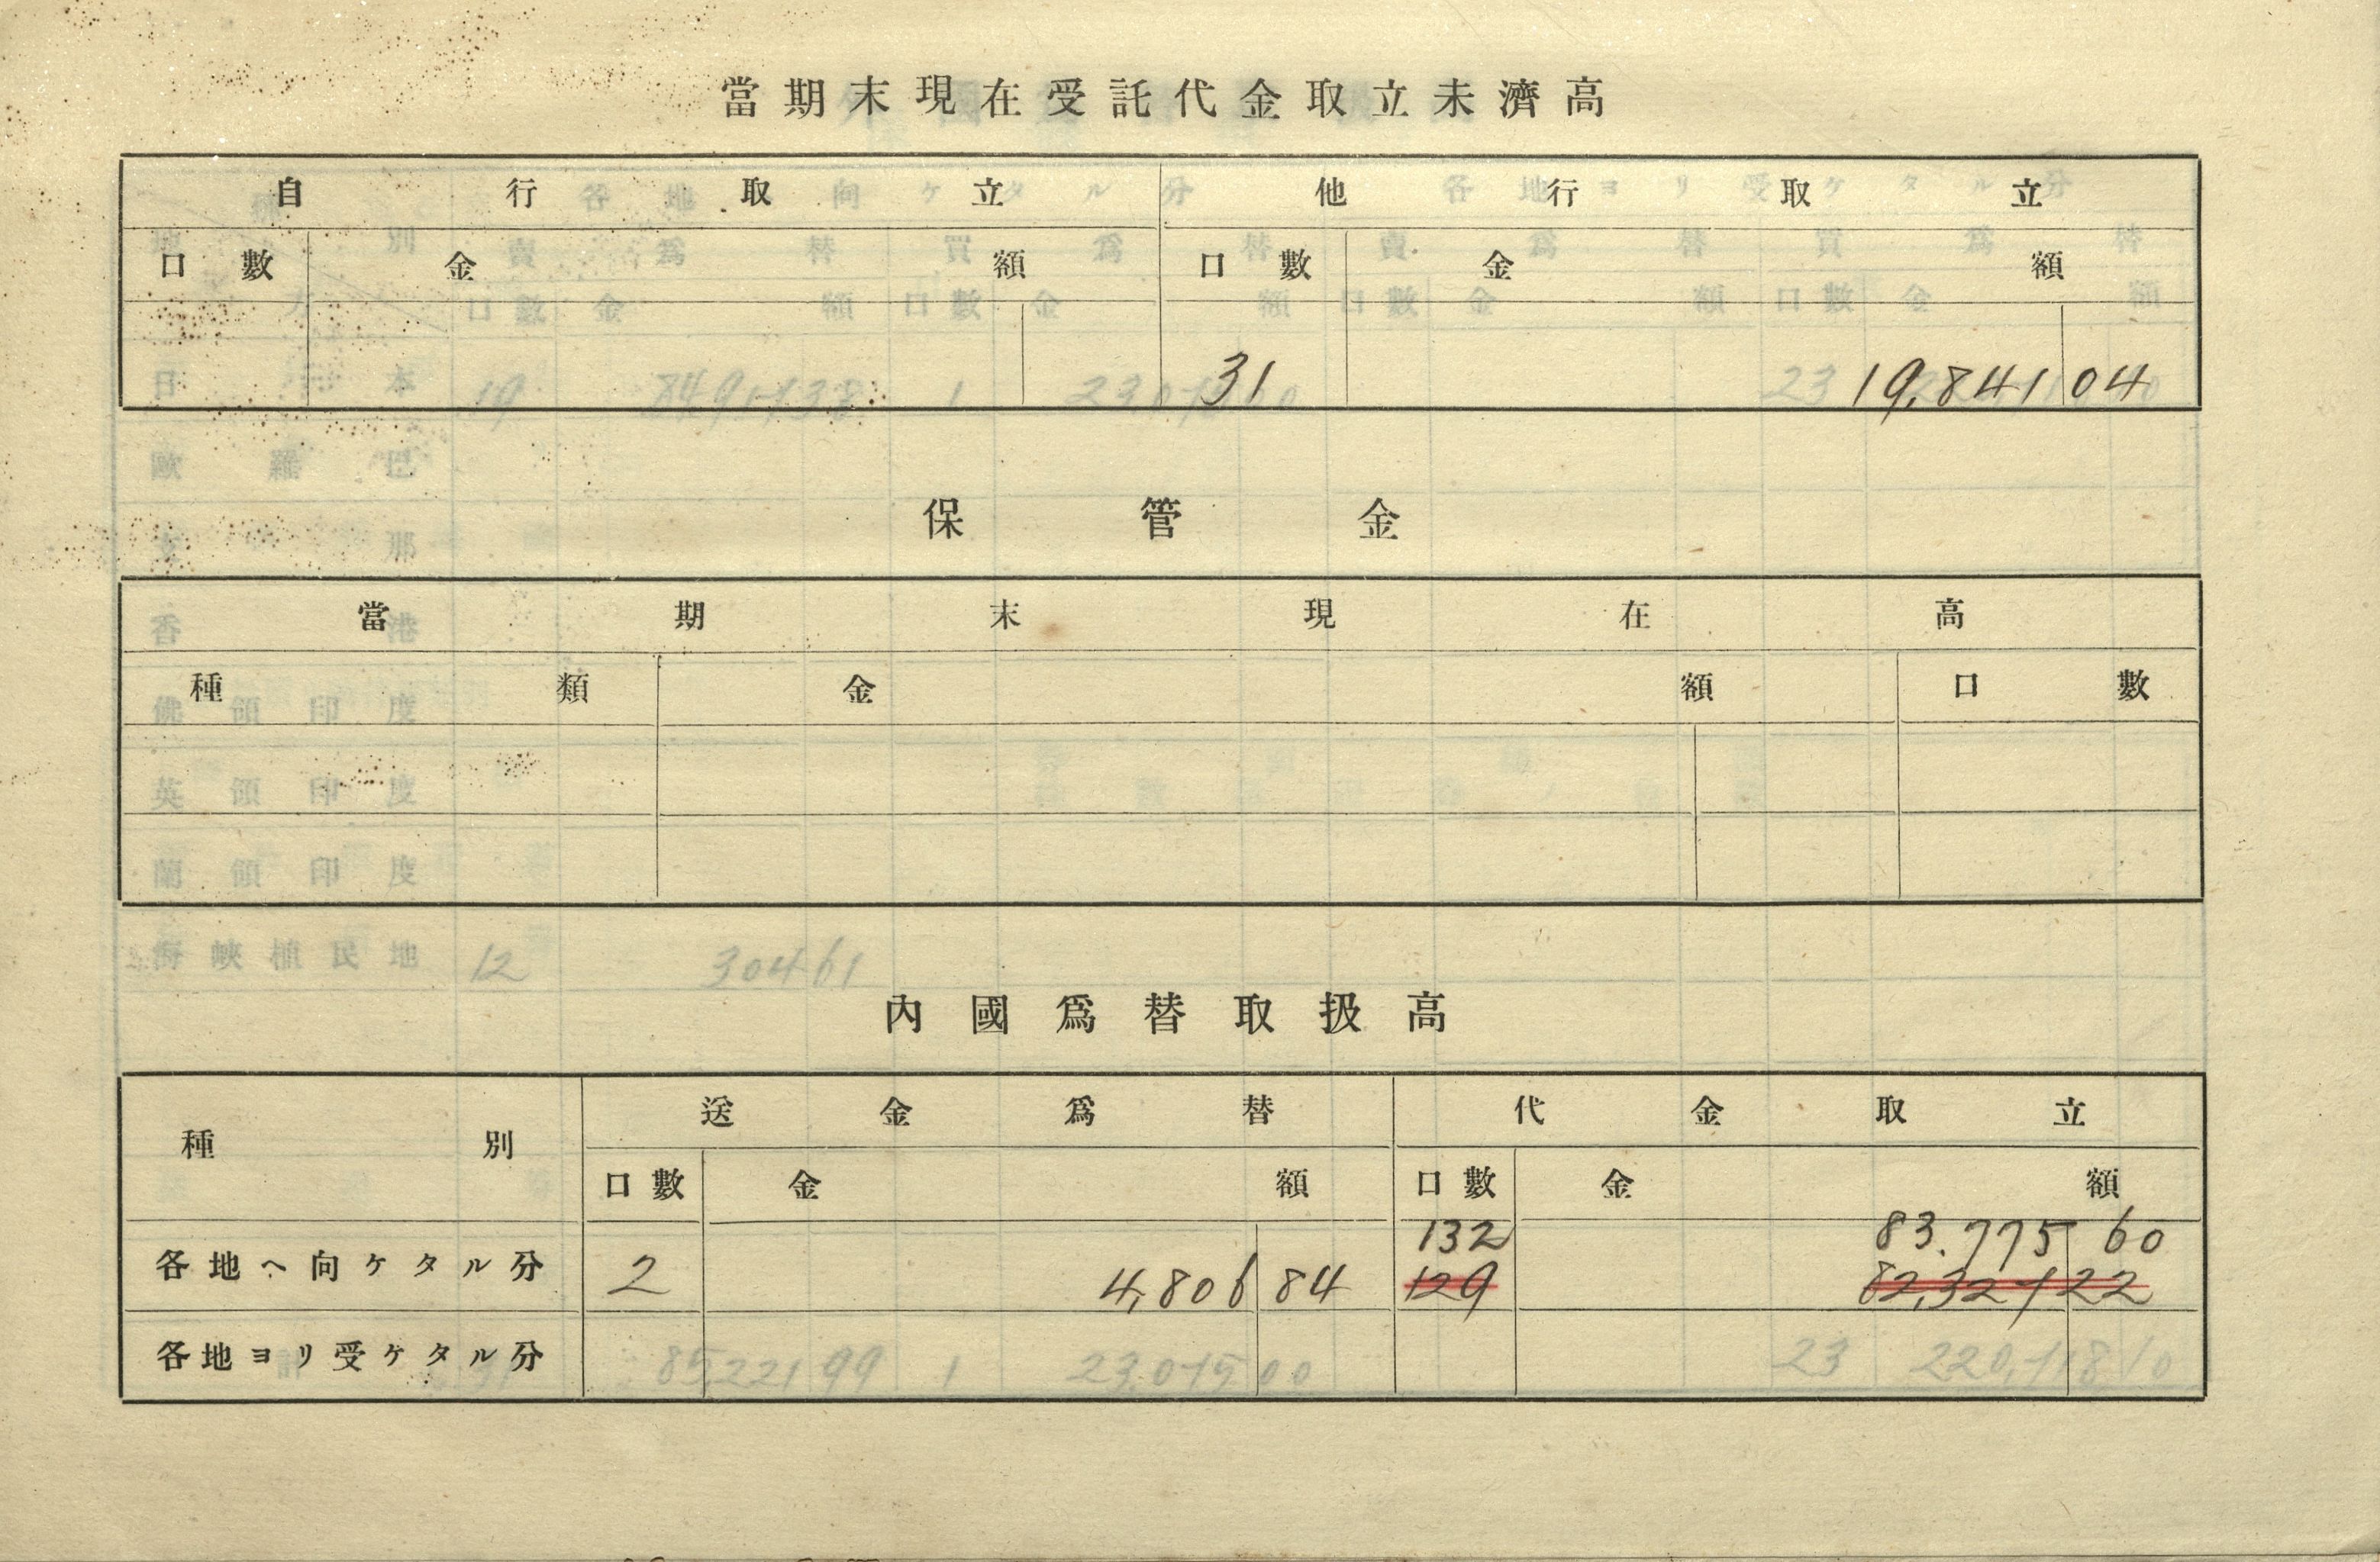 當期末現在受託代金取立未濟高
自行取立 他行取立
口數 金額 口數 金額
31 19,841 04
保管金
當期末現在高
種類 金額 口數
內國爲替取扱高
種別 送金爲替 代金取立
口數 金額 口數 金額
132 83.775 60
各地へ向ケタル分 2 4,806 84 129 82,327 22
各地ヨリ受ケタル分